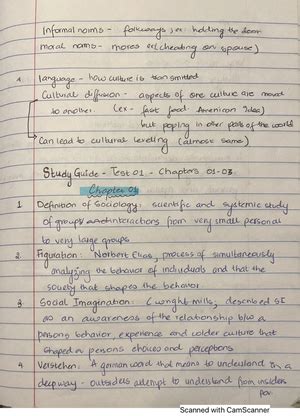 Informal norms - folkways; ex: holding the door
moral norms - mores ex(cheating on spouse)
4. language - how culture is transmitted
Cultural diffusion - aspects of one culture are moved
to another. (ex - fast food. American idea)
but poping in other parts of the world
Can lead to cultural leveling (almost same)
Study Guide - Test 01 - Chapters 01-03.
Chapter 01
1 Definition of Sociology: scientific and systematic study
of groups and interactions from very small personal
to very large groups
2. Figuration: Norbert Elias, process of simultaneously
analyzing the behavior of individuals and that the
society that shapes the behavior
3 Social Imagination: C wright mills, described SI
as an awareness of the relationship b/w a
persons behavior, experience and wider culture that
shaped a persons choices and perceptions
4 Verstehen: A german word that means to understand in a
deep way - outsiders attempt to understand from insiders
pov
Scanned with CamScanner